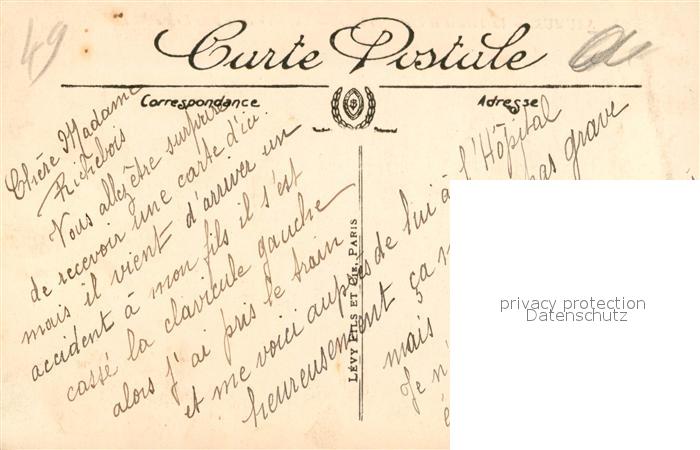 49
Carte Postale
Correspondance
Adresse
Chère Madame
Richebois
Vous allez être surprise
de recevoir une carte d'ici.
mais il vient d'arriver un
accident à mon fils il s'est
cassé la clavicule gauche
alors j'ai pris le train
et me voici auprès de lui à l'Hôpital
heureusement ça n' pas grave
mais
Je n'
LÉVY FILS ET CIE, PARIS
privacy protection
Datenschutz